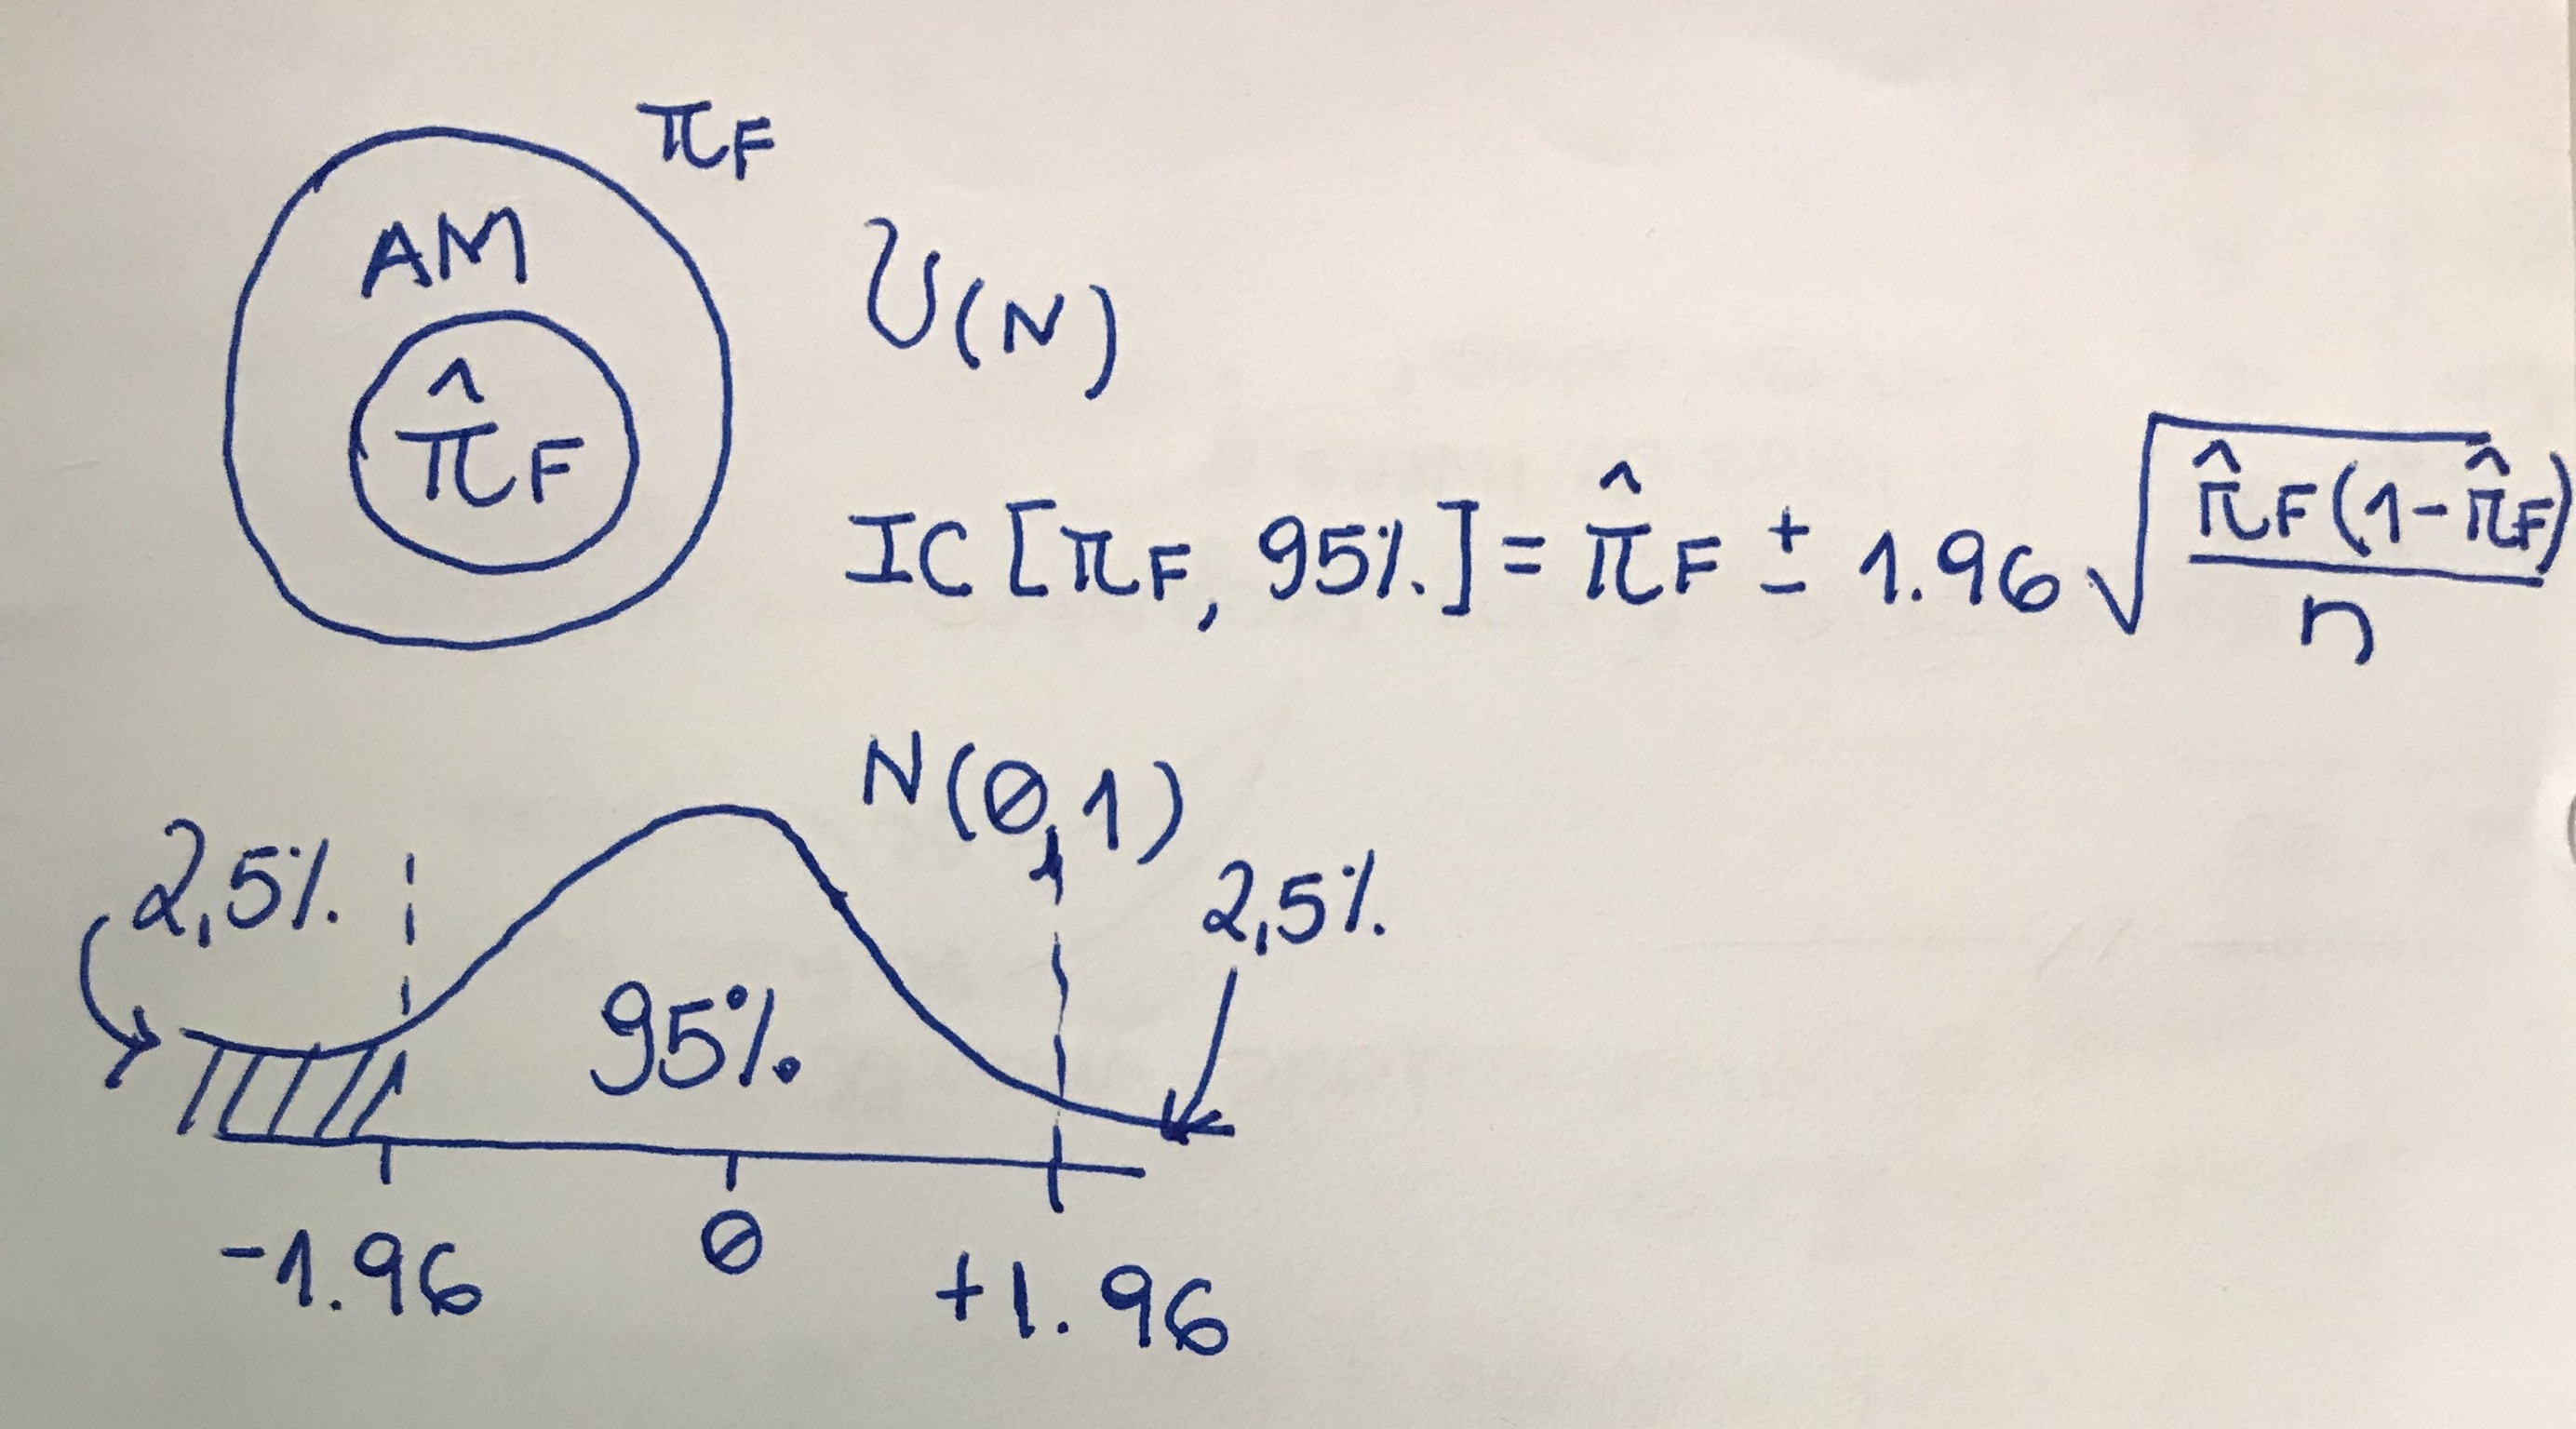 πF
AM
U(N)
π̂F
IC [πF, 95%] = π̂F ± 1.96 √(π̂F(1-π̂F)/n)
N(0,1)
2,5%
2,5%
95%
-1.96 0 +1.96